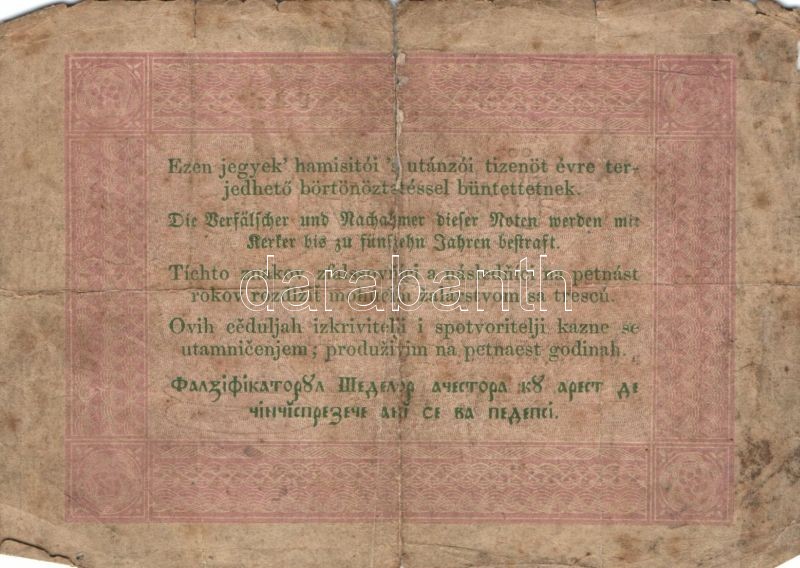 Ezen jegyek' hamisitói 's utánzói tizenöt évre ter-
jedhető börtönöztetéssel büntettetnek.
Die Verfälscher und Nachahmer dieser Noten werden mit
Kerker bis zu fünfzehn Jahren bestraft.
Tíchto a na petnást
rokov žalárstvom sa trescú.
darabanth
Ovih cĕduljah izkrivitelji i spotvoritelji kazne se
utamničenjem; produživim na petnaest godinah.
Фалзіфікаторꙋл Шеделор ачестора кꙋ арест де
чінчіспрезече ані се ва педепсі.